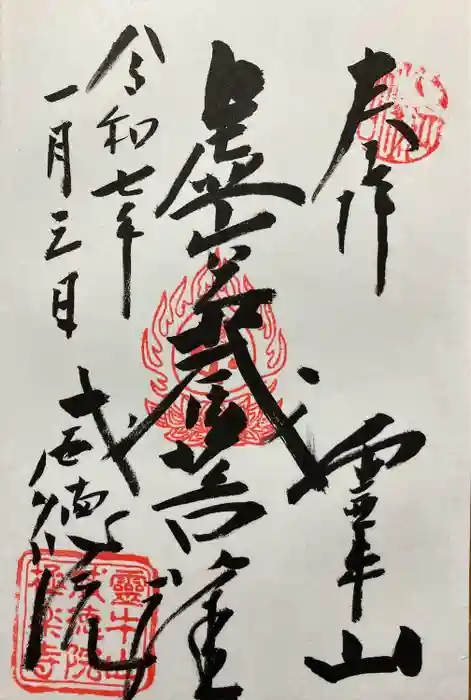 奉拝
霊牛山
虚空蔵菩薩
令和七年
一月三日
威徳院
靈牛山
威徳院
極樂寺